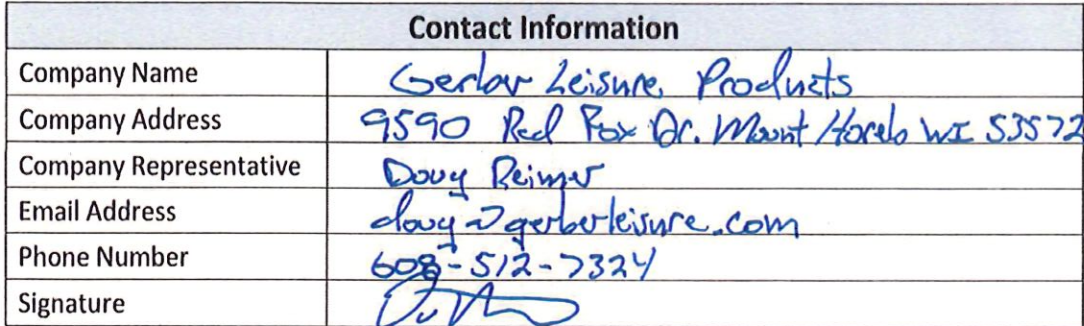 Contact Information
Company Name Gerber Leisure Products
Company Address 9590 Red Fox Dr. Mount Horeb WI 53572
Company Representative Doug Reimer
Email Address doug@gerberleisure.com
Phone Number 608-512-7324
Signature